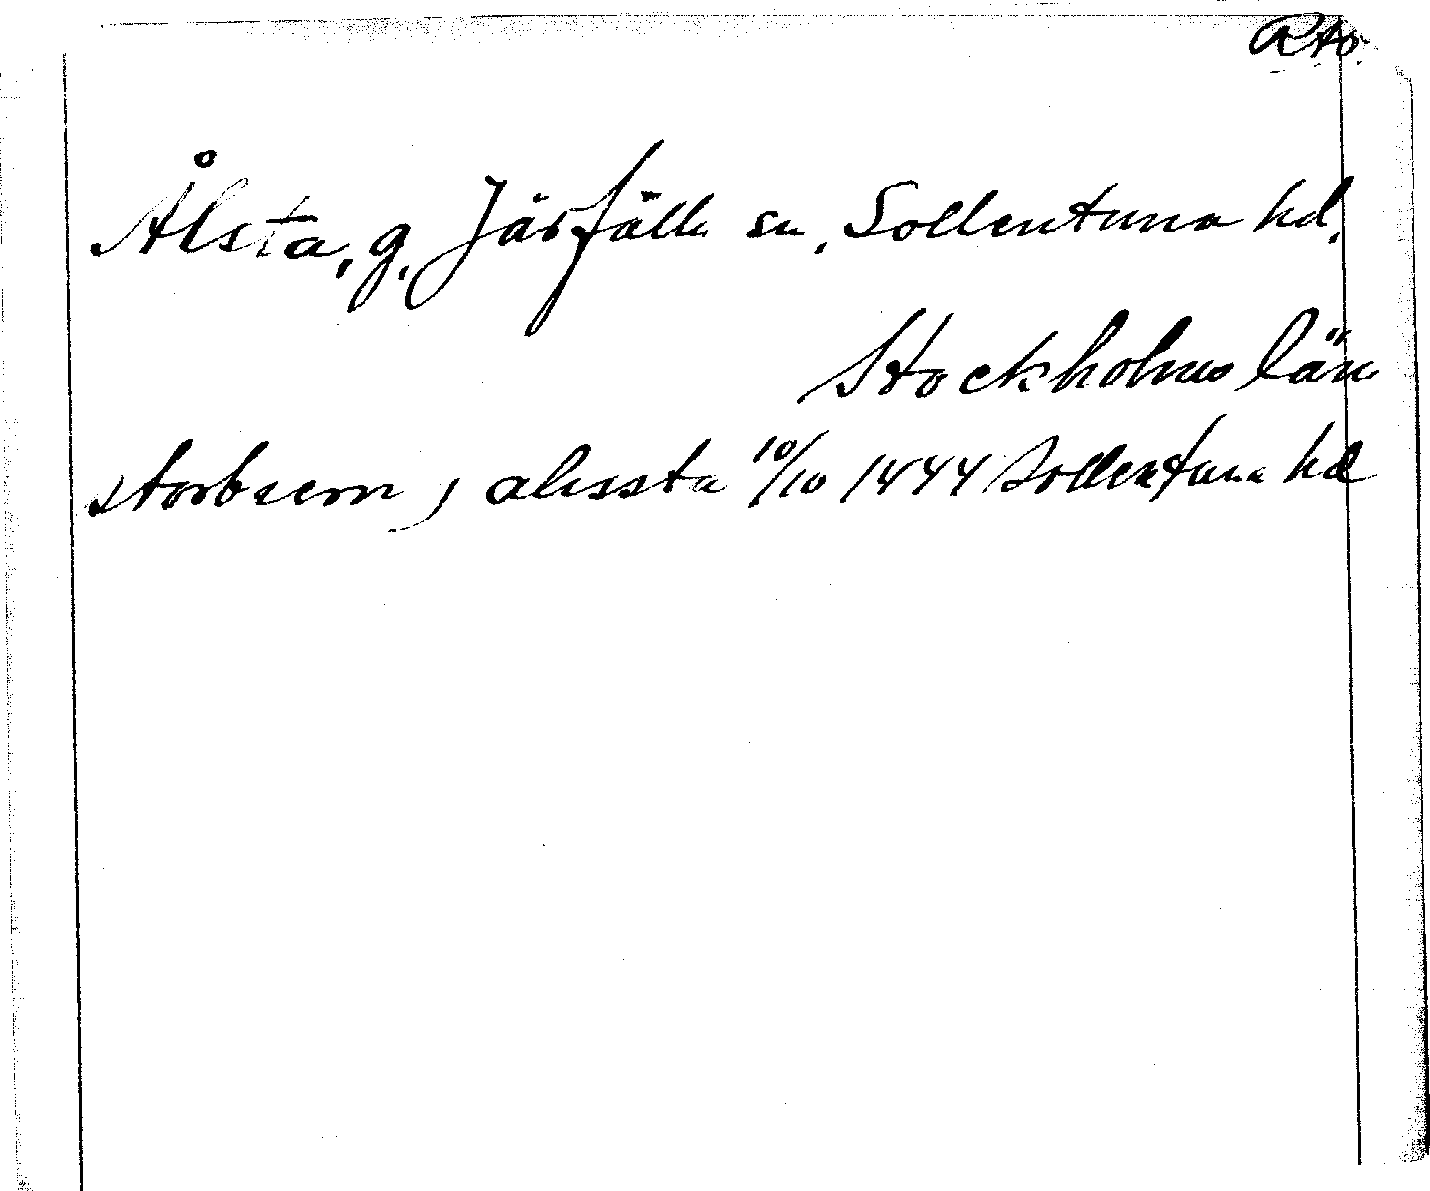 Rto.
Ålsta, g. Järfälla sn, Sollentuna hd,
Stockholms län
storbiem j alissta 10/10 1444 Sollentuna hd